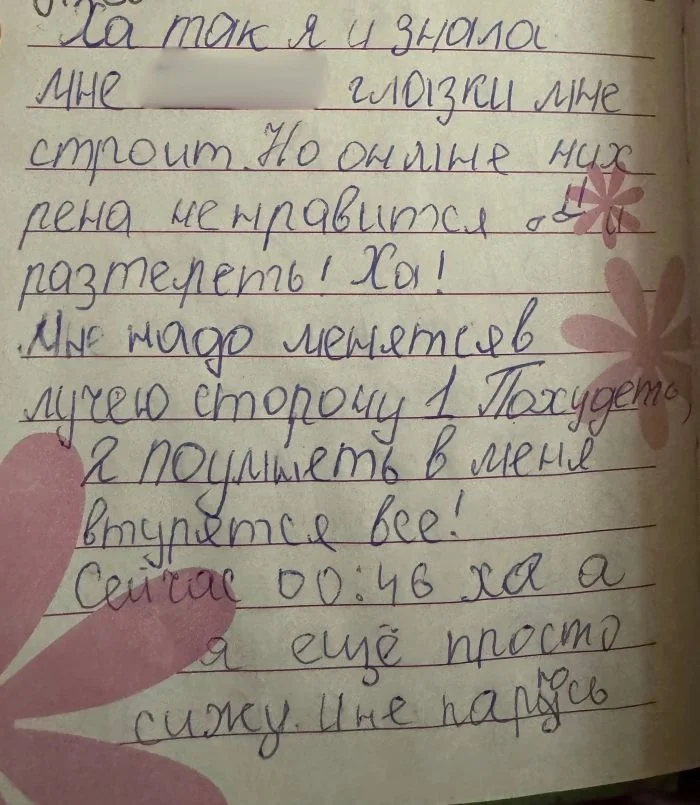 Ха так я и знала
мне глазки мне
строит. Но он мне них
рена ненравится и
разтереть! Ха!
Мне надо менятсяв
лучею сторону 1 Похудеть,
2 поумнеть в меня
втурятся все!
Сейчас 00:46 ха а
я ещё просто
сижу. И не парюсь